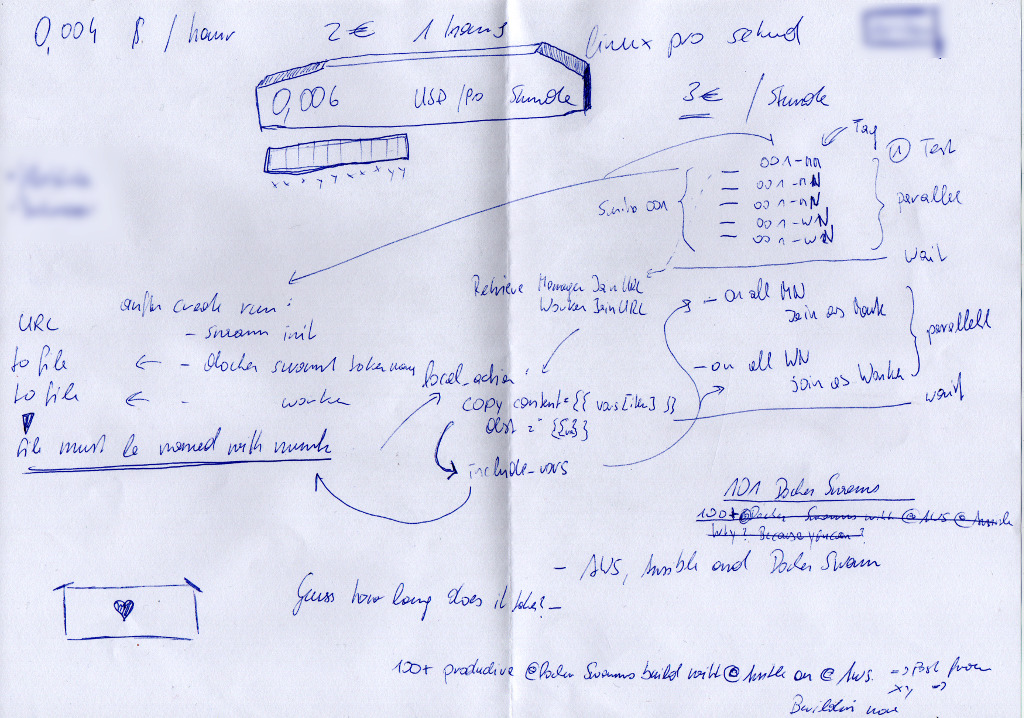 0,004 $ / hour
2 € 1 hours
linux pro sekund
0,006 USD / pro Stunde
3 € / Stunde
x x x y y x x x y y
Tag
① Test
001-nn
001-nN
001-nN
001-WN
001-WN
001
parallel
wait
Retrieve Manager Join URL
Worker Join URL
- on all MN
Join as
parallell
- on all WN
join as Worker
wait
after create run :
- swarm init
URL
to file ← - docker swarm token
to file ← - worker
file must be named with
local_action :
copy content = {{ vars[item] }}
dest = "{{ }}
include_vars
101 Docker Swarms
100+ @Docker Swarms with @AWS @Ansible
Why? Because you can?
- AWS, Ansible and Docker Swarm
Guess how long does it take? -
100+ productive @Docker Swarms build with @Ansible on @AWS. => Post from
xy =>
Building now